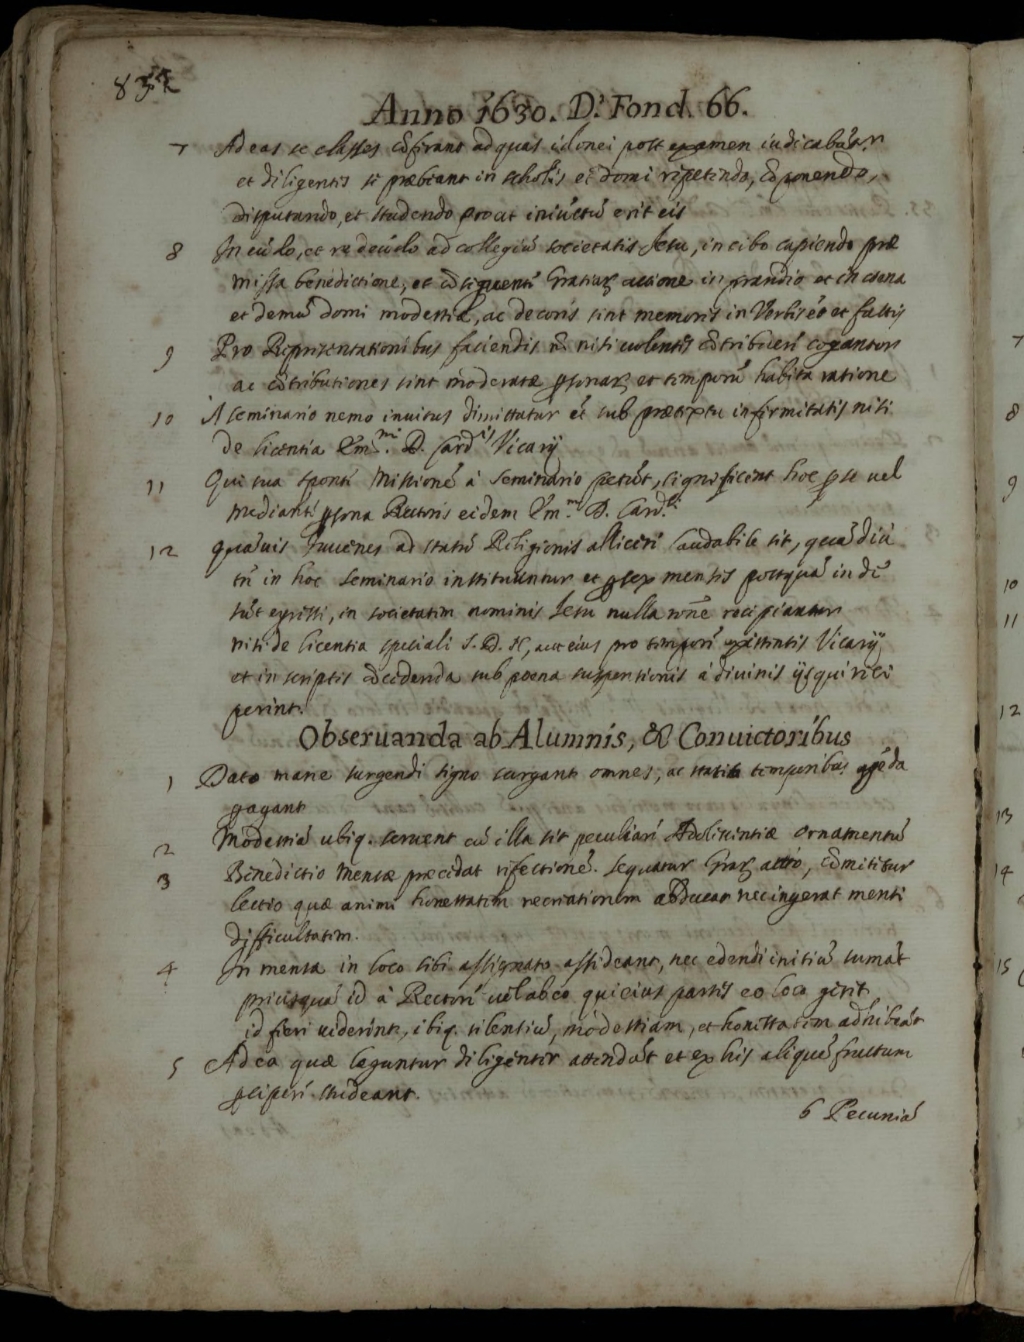 Anno 1630. D.ᵃ Fond. 66.
7 Ad eas se classes cõferant ad quas idonei post examen iudicabũtur
et diligentes se præbeant in scholis et domi repetendo, cõponendo,
disputando, et studendo prout iniũctũ erit eis
8 In eũdo, et redeũdo ad collegiũ societatis Jesu, in cibo capiendo præ
missa benedictione, et cõsequenti Gratiarꝫ actione in prandio et in cœna
et demũ domi modestiæ, ac decoris sint memores in Verbis et factis
9 Pro Representationibus faciendis nõ nisi uolentes cõtribuere cogantur
ac cõtributiones sint moderatæ ꝑsonarꝫ et temporũ habita ratione
10 A seminario nemo inuitus dimittatur ẽt sub prætextu infirmitatis nisi
de licentia Em.ᵐⁱ D. Card.ˡⁱˢ Vicarij
11 Qui sua sponte Missionẽ à seminario petũt, significent hoc ꝑ se uel
mediante ꝑsona Rectoris eidem Em.ᵐᵒ D. Card.ˡⁱ
12 Quãuis Iuuenes ad statũ Religionis allicere laudabile sit, quãdiu
tñ in hoc seminario instituuntur et ꝑ sex menses postquã inde
sũt egressi, in societatem nominis Jesu nulla rõne recipiantur
nisi de licentia speciali S. D. N, aut eius pro tempore existentis Vicarij
et in scriptis cõcedenda sub poena suspensionis à diuinis ijs qui rece
perint.
Obseruanda ab Alumnis, & Conuictoribus
1 Dato mane surgendi signo surgant omnes, ac statis temporibus agẽda
ꝑagant
2 Modestiã ubiq. seruent cũ illa sit peculiare Adolescentiæ ornamentũ
3 Benedictio Mensæ præcedat refectionẽ. sequatur Grarꝫ actio, cõmititur
lectio quæ animi honestatem recreationem adducat nec ingerat menti
difficultatem.
4 In mensa in loco sibi assignato assideant, nec edendi initiũ sumãt
priusquã id à Rectore uel ab eo qui eius partes eo loco gerit
id fieri uiderint, ibiq. silentiũ, modestiam, et honestatem adhibeãt
5 Ad ea quæ leguntur diligenter attendãt et ex his aliquẽ fructum
ꝑcipere studeant.
6 Pecuniã
7
8
9
10
11
12
13
14
15